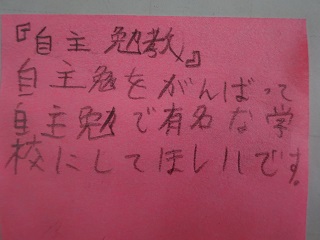 『自主勉教』
自主勉をがんばって
自主勉で有名な学
校にしてほしいです。